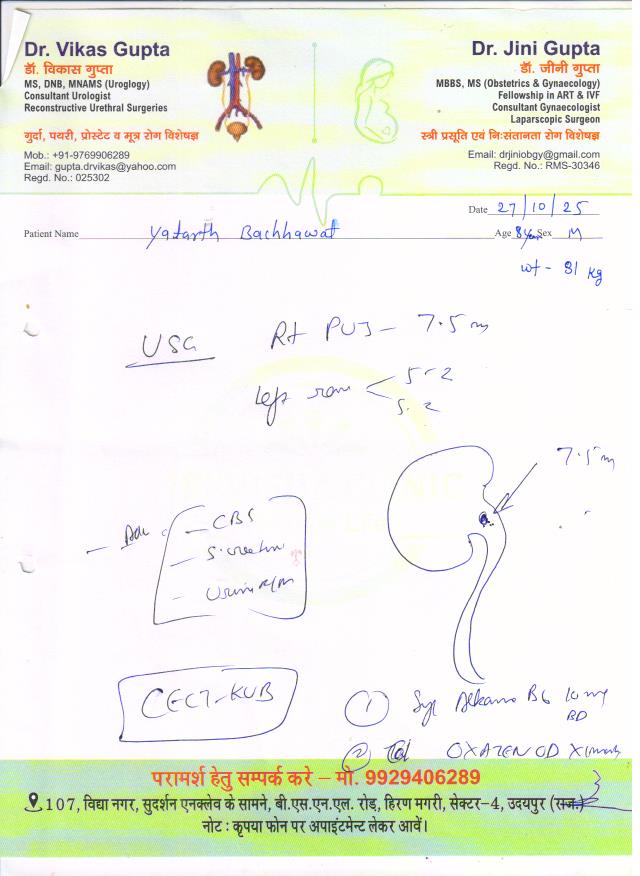 Dr. Vikas Gupta
डॉ. विकास गुप्ता
MS, DNB, MNAMS (Uroglogy)
Consultant Urologist
Reconstructive Urethral Surgeries
गुर्दा, पथरी, प्रोस्टेट व मूत्र रोग विशेषज्ञ
Mob.: +91-9769906289
Email: gupta.drvikas@yahoo.com
Regd. No.: 025302
Dr. Jini Gupta
डॉ. जीनी गुप्ता
MBBS, MS (Obstetrics & Gynaecology)
Fellowship in ART & IVF
Consultant Gynaecologist
Laparscopic Surgeon
स्त्री प्रसूति एवं निःसंतानता रोग विशेषज्ञ
Email: drjiniobgy@gmail.com
Regd. No.: RMS-30346
Date 27/10/25
Patient Name Yatarth Bachhawat Age 8 Year Sex M
wt - 31 kg
USG Rt PUJ - 7.5 m
Left 5.2
5.2
7.5 m
CBS
S. creatinine
Urine R/M
CECT-KUB
1 Syp Alkarno B6 10 mg
BD
2 OXAZEN OD X
परामर्श हेतु सम्पर्क करे – मो. 9929406289
107, विद्या नगर, सुदर्शन एनक्लेव के सामने, बी.एस.एन.एल. रोड, हिरण मगरी, सेक्टर-4, उदयपुर (राज.)
नोट : कृपया फोन पर अपाइंटमेन्ट लेकर आवें।